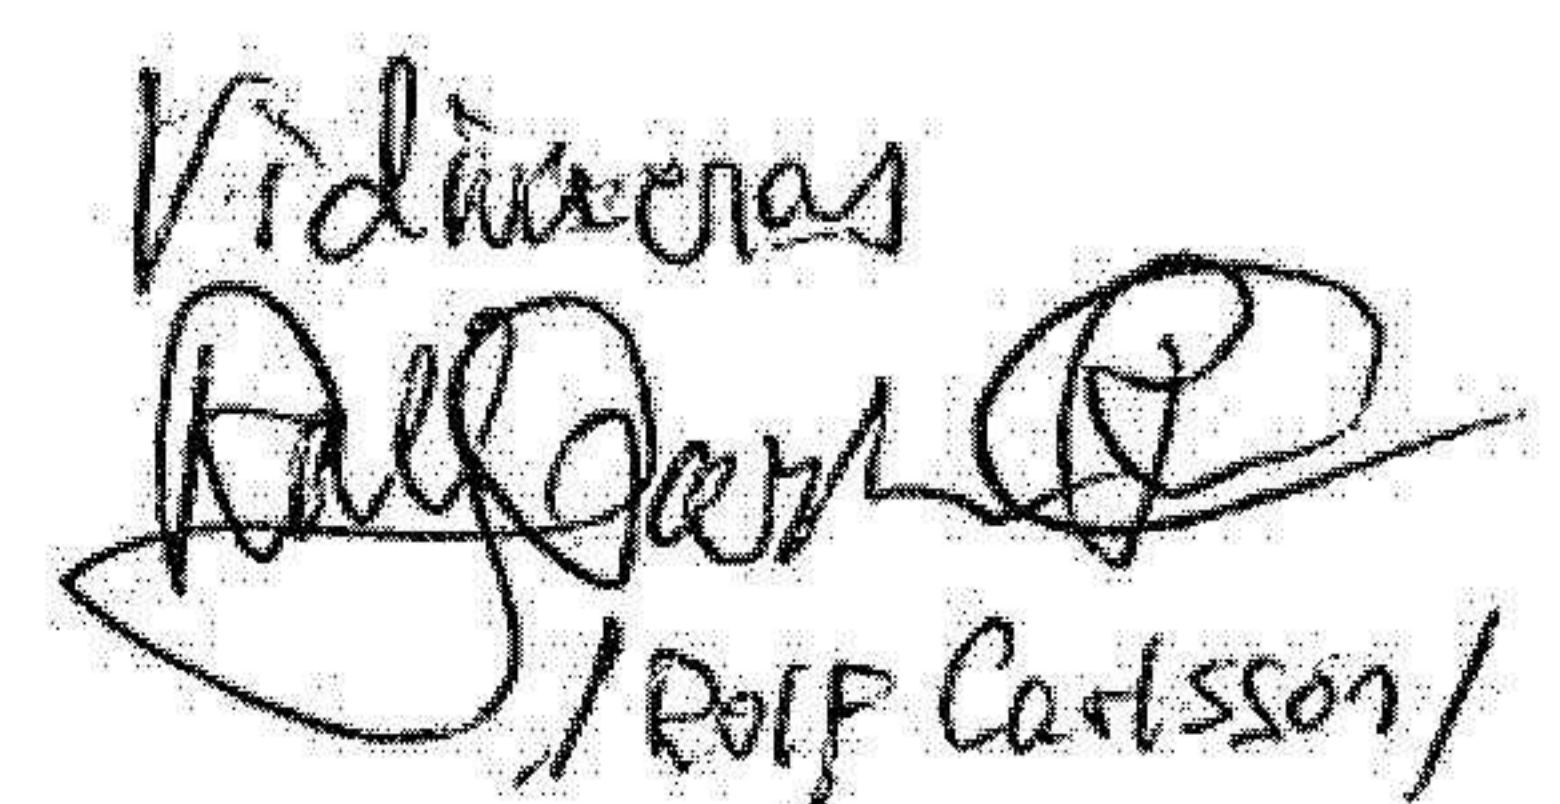 Vidimeras
Rolf Carlsson
/Rolf Carlsson/